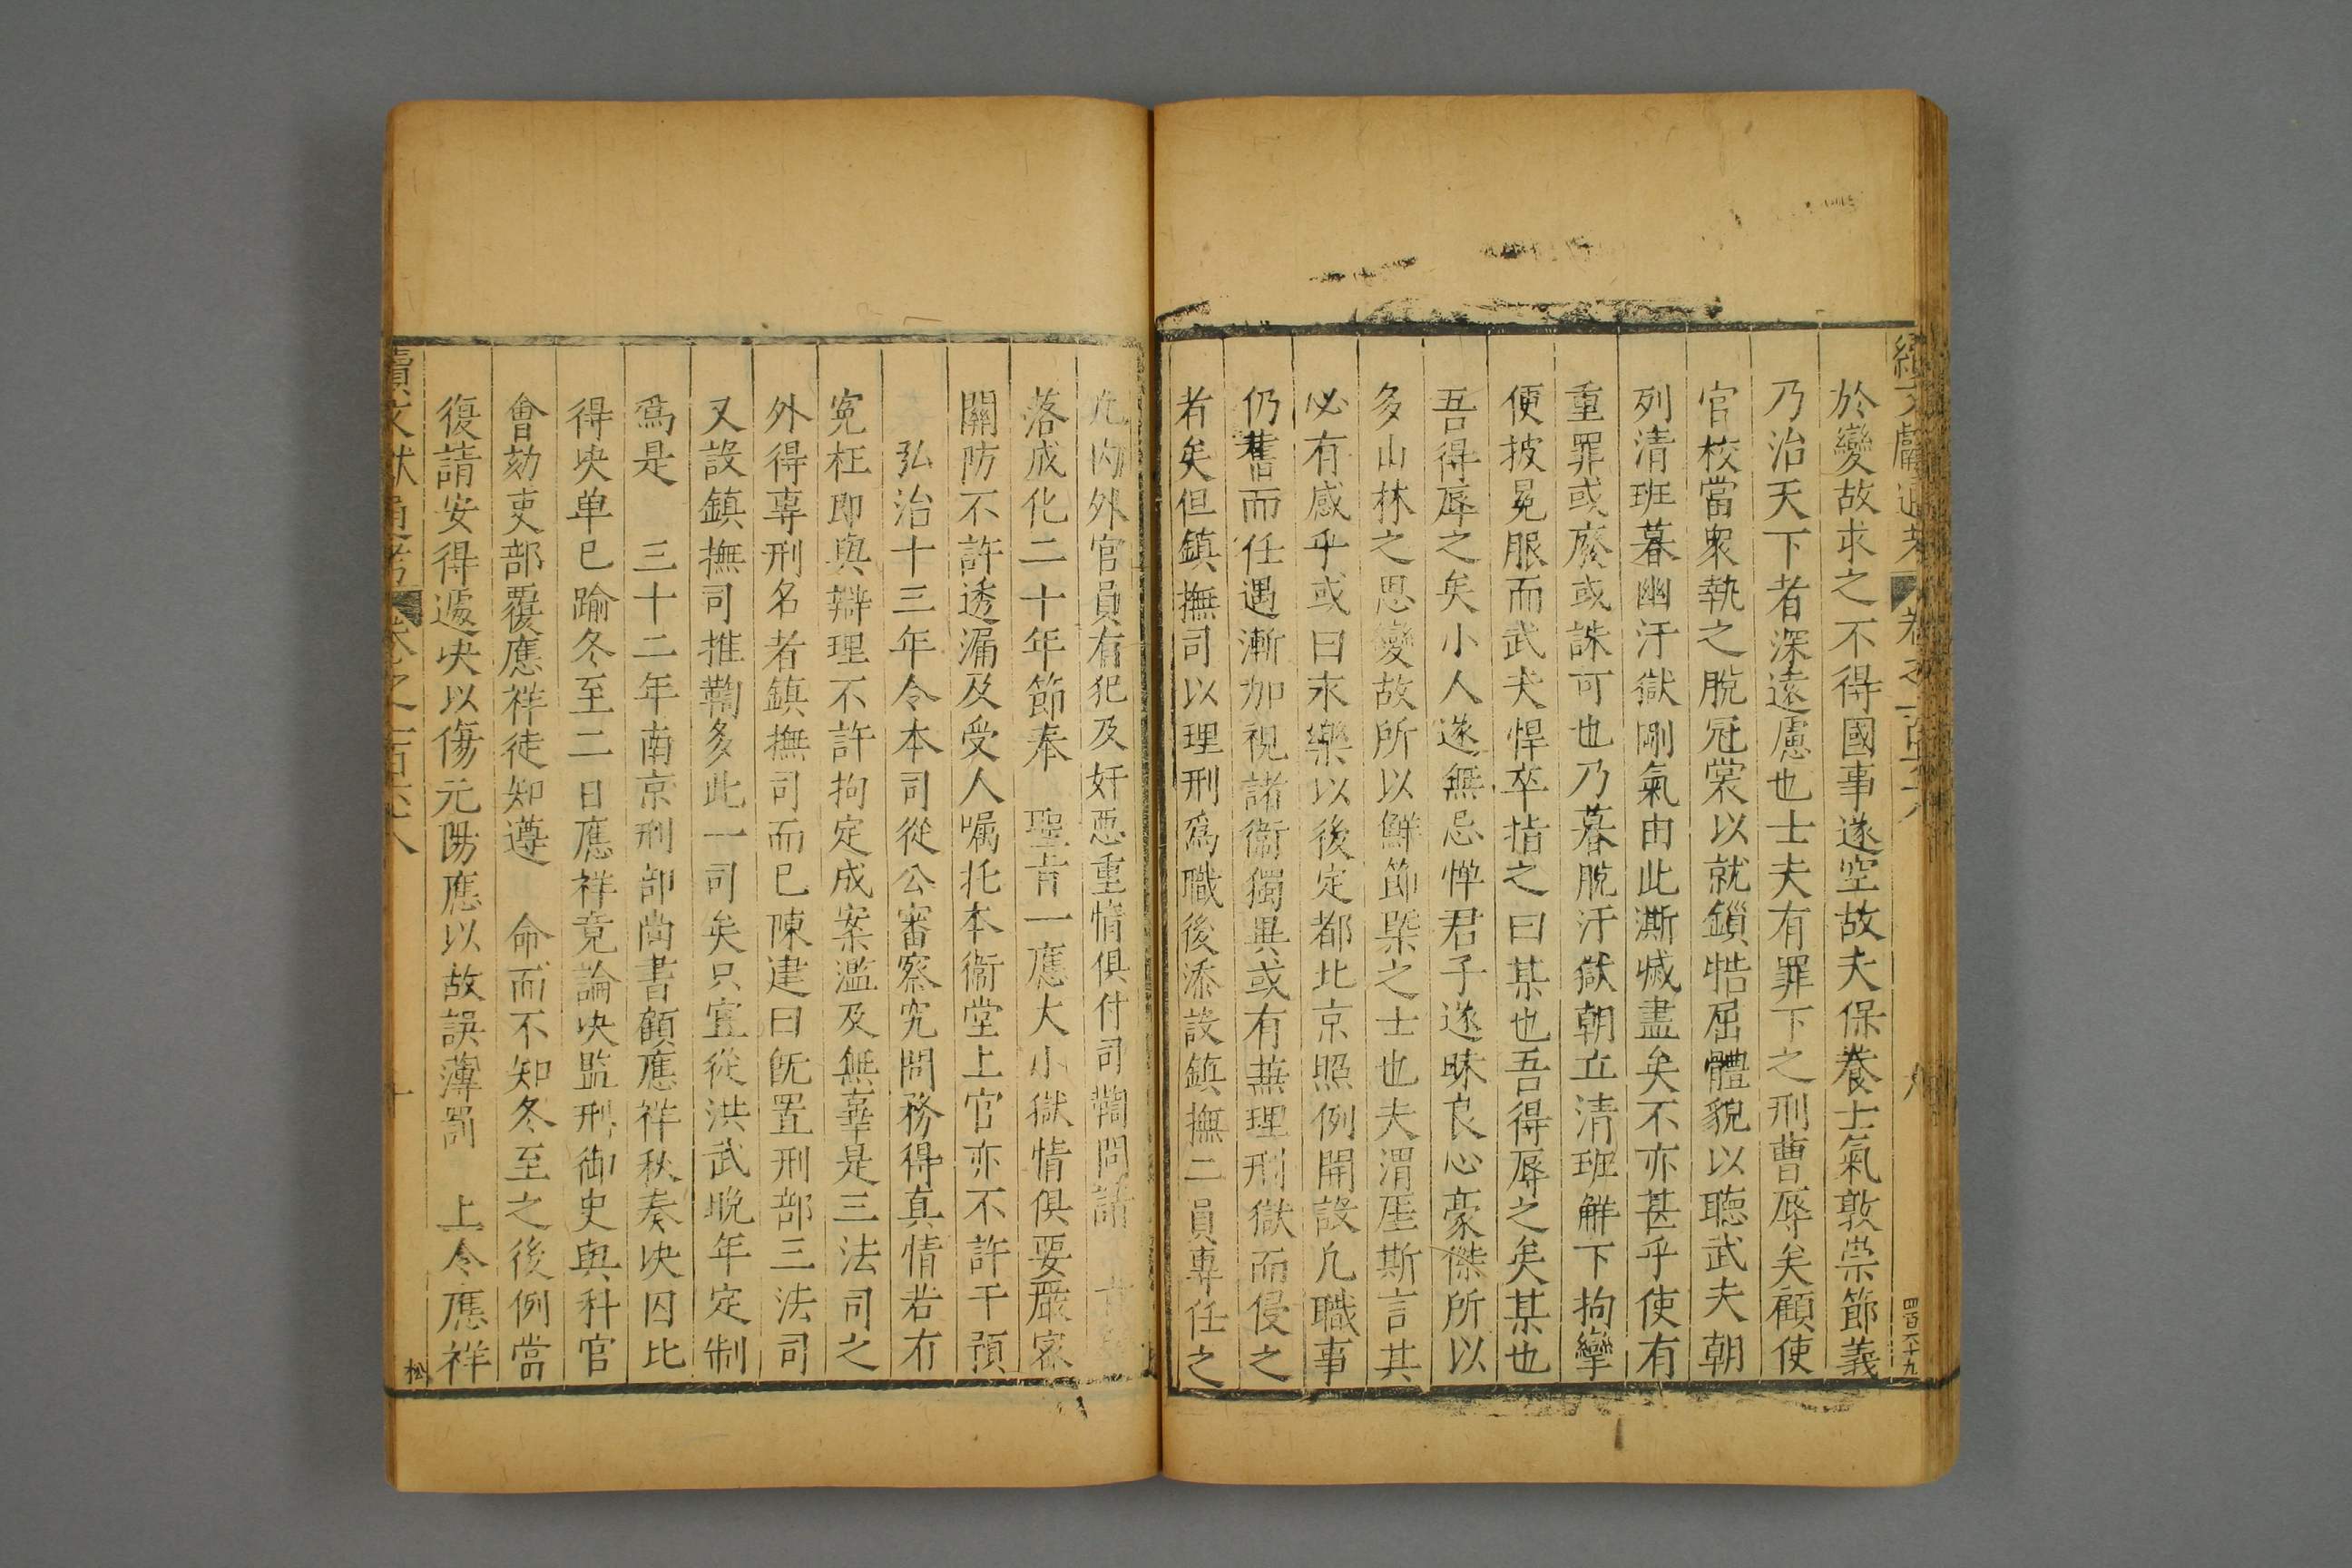 續文獻通考 卷之一百六十八 八 四百六十九
於變故求之不得國事遂空故夫保養士氣敦崇節義
乃治天下者深遠慮也士夫有罪下之刑曹辱矣顧使
官校當衆執之脫冠裳以就鎖梏屈體貌以聴武夫朝
列清班暮幽汙獄剛氣由此澌滅盡矣不亦甚乎使有
重罪或廢或誅可也乃暮脫汙獄朝立清班解下拘攣
便披冕服而武夫悍卒指之曰某也吾得辱之矣某也
吾得辱之矣小人遂無忌憚君子遂昧良心豪傑所以
多山林之思變故所以鮮節槩之士也夫渭厓斯言其
必有感乎或曰永樂以後定都北京照例開設凡職事
仍舊而任遇漸加視諸衞獨異或有兼理刑獄而侵之
者矣但鎮撫司以理刑爲職後添設鎮撫二員專任之
凡內外官員有犯及奸惡重情俱付司鞫問請
落成化二十年節奉 聖旨一應大小獄情俱要嚴密
關防不許透漏及受人嘱托本衞堂上官亦不許干預
弘治十三年令本司從公審察究問務得真情若有
寃枉即與辯理不許拘定成案濫及無辜是三法司之
外得專刑名者鎮撫司而已陳建曰旣置刑部三法司
又設鎮撫司推鞫多此一司矣只宜從洪武晚年定制
爲是 三十二年南京刑部尚書顧應祥秋奏决囚比
得决单已踰冬至二日應祥竟論决監刑御史與科官
會劾吏部覆應祥徒知遵 命而不知冬至之後例當
復請安得遽决以傷元陽應以故誤薄罰 上令應祥
續文獻通考 卷之一百六十八 十 松